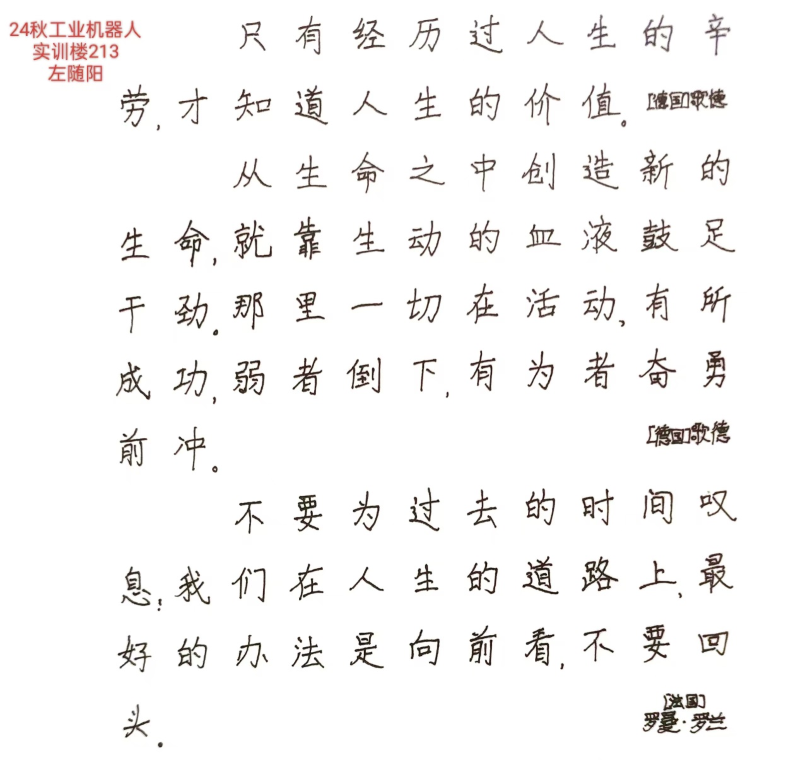 24秋工业机器人
实训楼213
左随阳
只有经历过人生的辛
劳,才知道人生的价值。[德国]歌德
从生命之中创造新的
生命,就靠生动的血液鼓足
干劲。那里一切在活动,有所
成功,弱者倒下,有为者奋勇
前冲。[德国]歌德
不要为过去的时间叹
息!我们在人生的道路上,最
好的办法是向前看,不要回
头。
[法国]
罗曼·罗兰